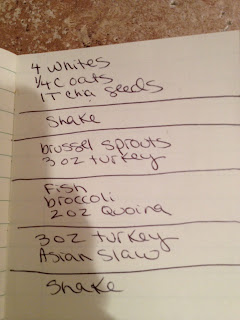 4 whites
1/4 C oats
1T chia seeds
Shake
brussel sprouts
3 oz turkey
Fish
broccoli
2oz Quoina
3oz turkey
Asian Slaw
Shake